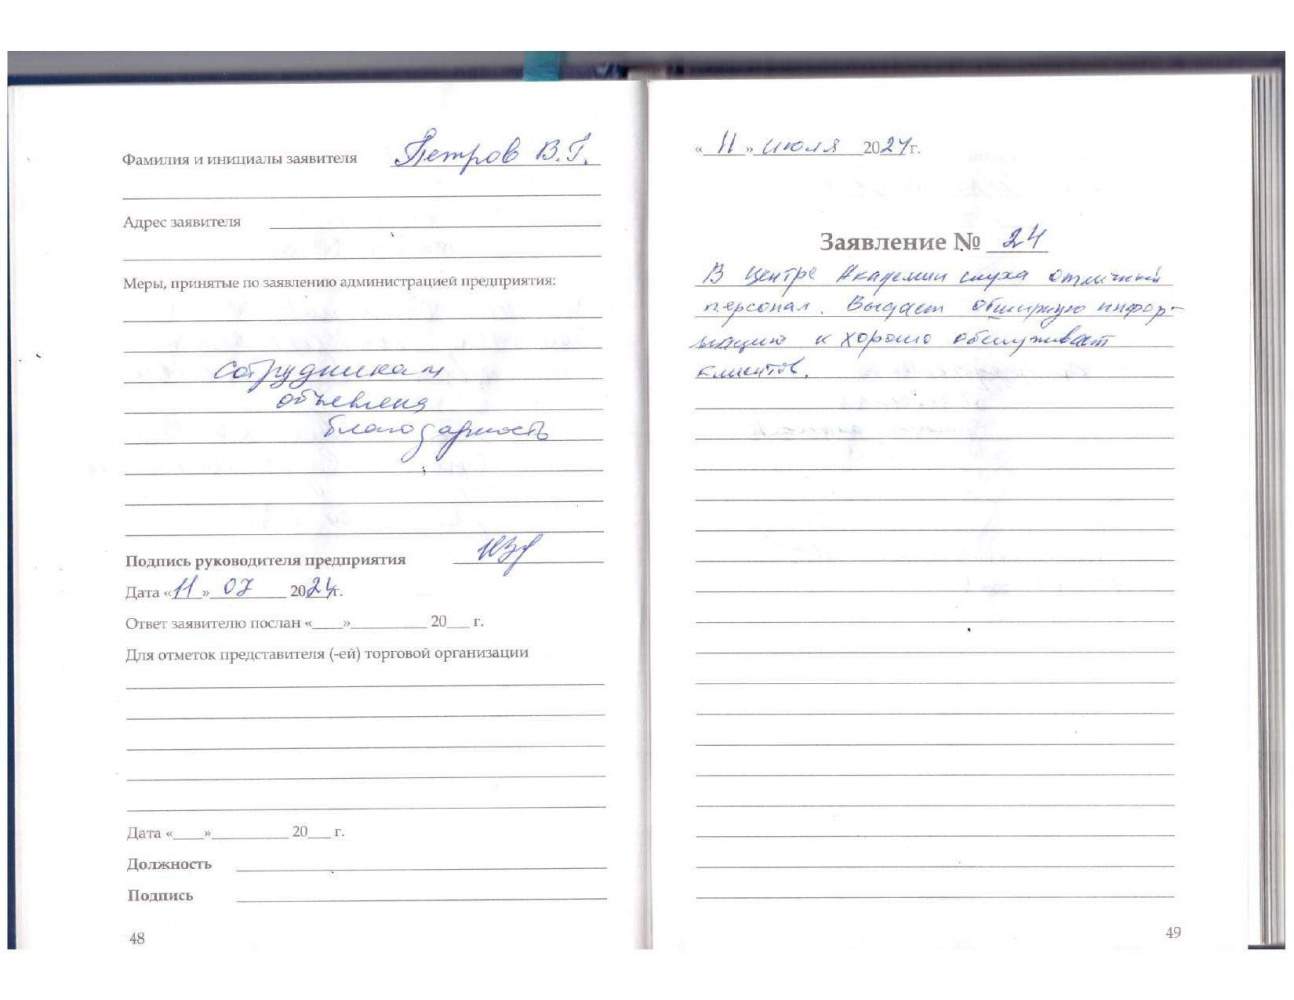 Фамилия и инициалы заявителя Петров В.Г.
Адрес заявителя
Меры, принятые по заявлению администрацией предприятия:
сотрудникам
объявлена
благодарность
Подпись руководителя предприятия
Дата «11» 07 2024г.
Ответ заявителю послан «____»__________ 20___ г.
Для отметок представителя (-ей) торговой организации
Дата «____»__________ 20___ г.
Должность
Подпись
48
«11» июля 2024г.
Заявление № 24
В Центре Академии слуха отличный
персонал. Выдает обширную инфор-
мацию и хорошо обслуживает
клиентов.
49